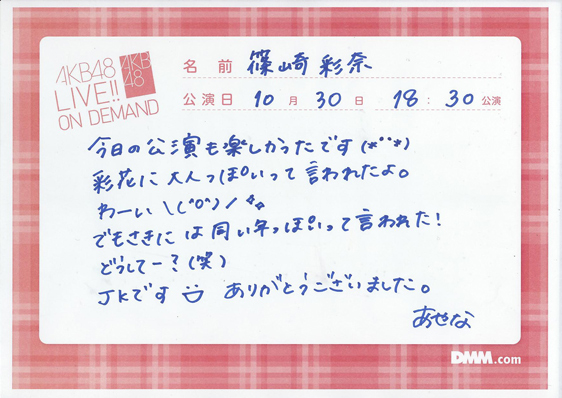 AKB48
LIVE!!
ON DEMAND
AKB
48
名前 篠崎 彩奈
公演日 10月30日 18:30公演
今日の公演も楽しかったです(*ˊˋ*)
彩花に大人っぽいって言われたよ。
わーい\(^o^)/
でもさきには同い年っぽいって言われた!
どうしてー?(笑)
JKです ありがとうございました。
あやな
DMM.com